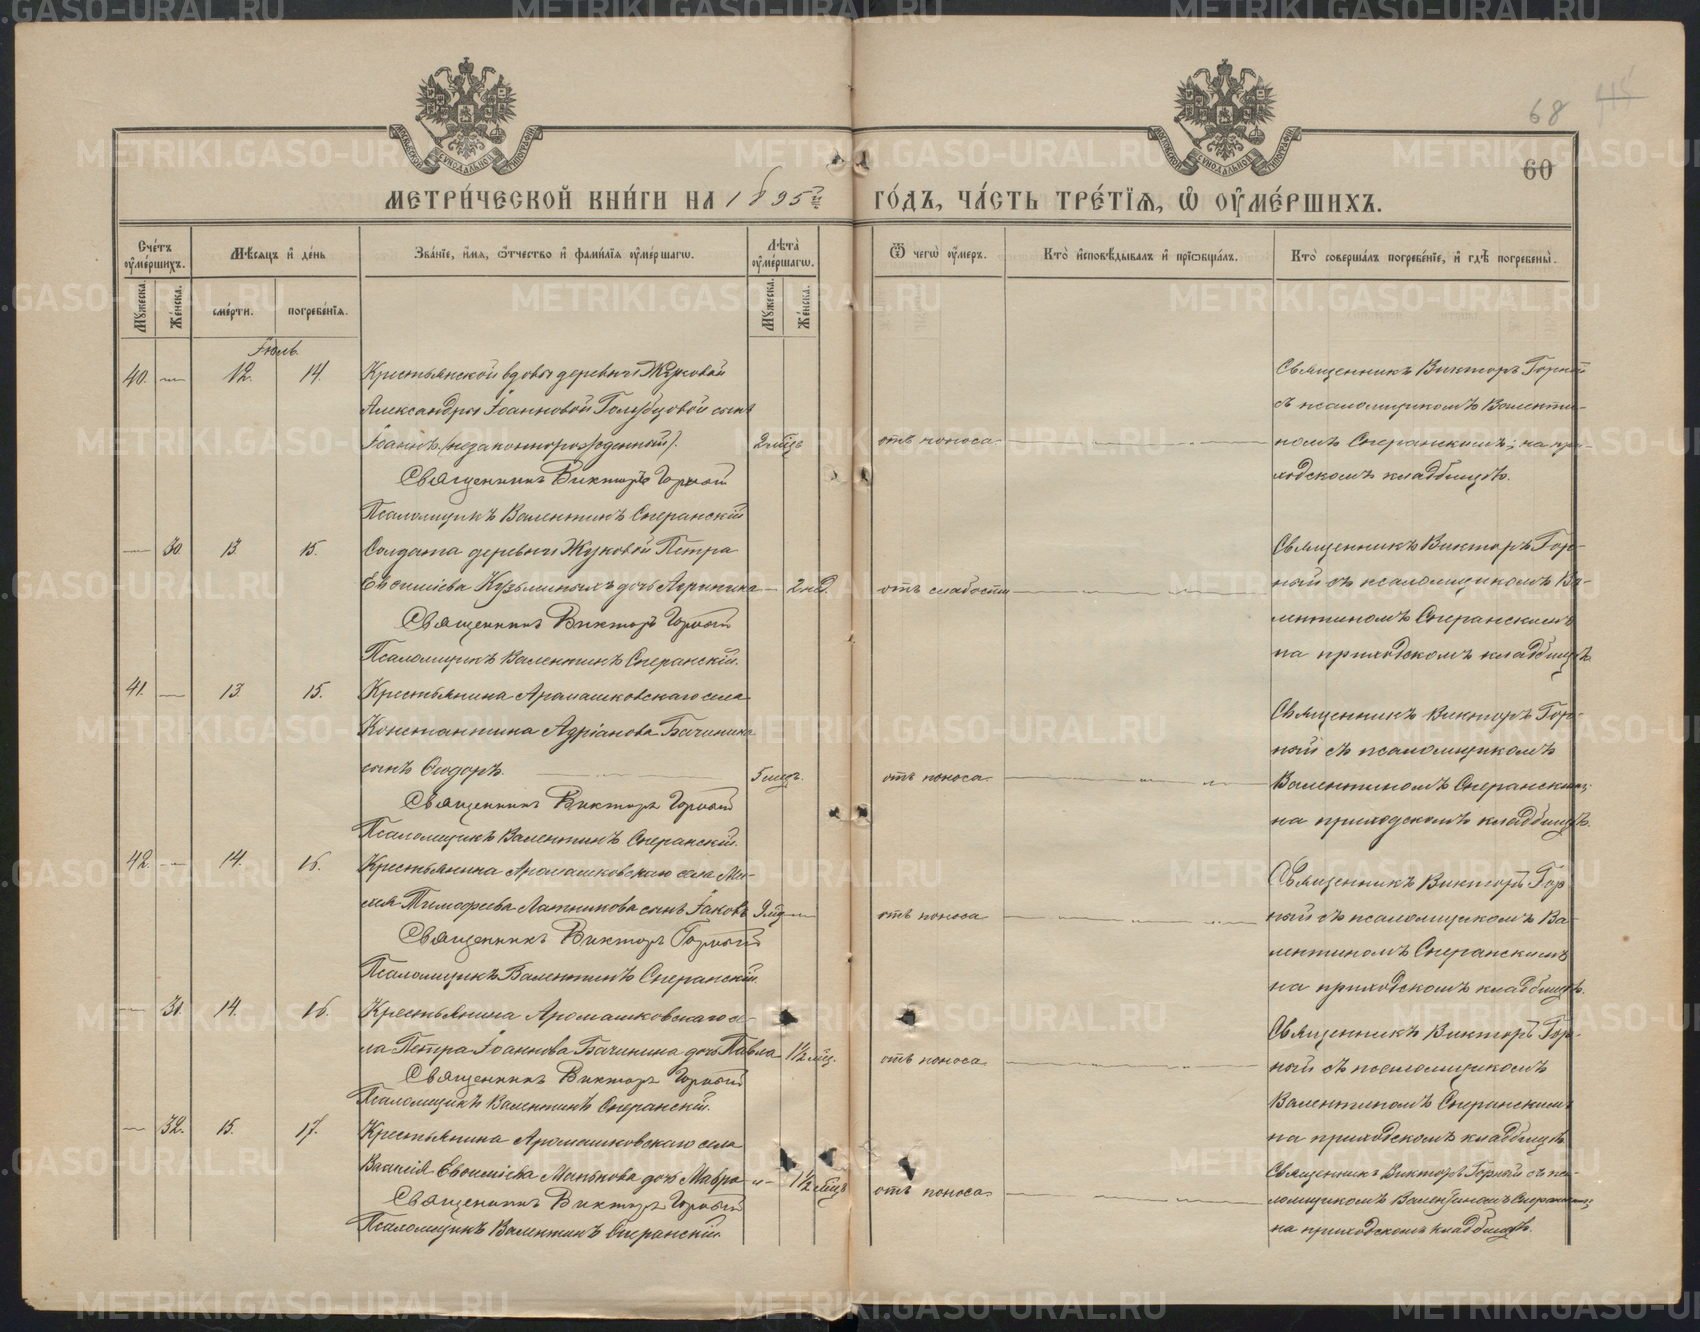 METRIKI.GASO-URAL.RU
68
60
МЕТРИ́ЧЕСКОЙ КНИ́ГИ НА 1895й ГО́ДЪ, ЧА́СТЬ ТРЕ́ТЇѦ, Ѡ҆ ОУ҆МЕ́РШИХЪ.
Сче́тъ оу҆ме́ршихъ.
Мѣ́сѧцъ и҆ де́нь
Зва́нїе, и҆́мѧ, ѻ҆́тчество и҆ фами́лїѧ оу҆ме́ршагѡ.
Лѣ́та оу҆ме́ршагѡ.
Ѿ чегѡ̀ оу҆́меръ.
Кто̀ и҆сповѣ́дывалъ и҆ прїѡбща́лъ.
Кто̀ соверша́лъ погребе́нїе, и҆ гдѣ̀ погребены̀.
Мꙋ́жеска.
Же́нска.
сме́рти.
погребе́нїѧ.
Мꙋ́жеска.
Же́нска.
Іюль.
40. — 12. 14. Крестьянской вдовы деревни Жуковой
Александры Іоанновой Голубцовой сынъ
Іоаннъ (незаконнорожденный). 2 мѣс. отъ поноса.
Священникъ Викторъ Горный
Псаломщикъ Валентинъ Сперанскій
Священникъ Викторъ Горный
съ псаломщикомъ Валенти-
номъ Сперанскимъ; на при-
ходскомъ кладбищѣ.
— 30. 13. 15. Солдата деревни Жуковой Петра
Евѳиміева Кузьминыхъ дочь — 2 нед. отъ слабости
Священникъ Викторъ Горный
Псаломщикъ Валентинъ Сперанскій.
Священникъ Викторъ Гор-
ный съ псаломщикомъ Ва-
лентиномъ Сперанскимъ
на приходскомъ кладбищѣ.
41. — 13 15. Крестьянина Арамашковскаго села
Константина Адріанова Бачинина
сынъ Ѳеодоръ. 5 мѣс. отъ поноса.
Священникъ Викторъ Горный
Псаломщикъ Валентинъ Сперанскій.
Священникъ Викторъ Гор-
ный съ псаломщикомъ
Валентиномъ Сперанскимъ
на приходскомъ кладбищѣ.
42. — 14. 16. Крестьянина Арамашковскаго села Мо-
сея Тимофеева Латникова сынъ Іаковъ отъ поноса
Священникъ Викторъ Горный
Псаломщикъ Валентинъ Сперанскій.
Священникъ Викторъ Гор-
ный съ псаломщикомъ Ва-
лентиномъ Сперанскимъ
на приходскомъ кладбищѣ.
— 31. 14. 16. Крестьянина Арамашковскаго се-
ла Петра Іоаннова Бачинина дочь Павла 1½ мѣс. отъ поноса
Священникъ Викторъ Горный
Псаломщикъ Валентинъ Сперанскій.
Священникъ Викторъ Гор-
ный съ псаломщикомъ
Валентиномъ Сперанскимъ
на приходскомъ кладбищѣ
— 32. 15. 17. Крестьянина Арамашковскаго села
Василія Евѳиміева Манькова дочь Мавра — 1½ мѣс. отъ поноса.
Священникъ Викторъ Горный
Псаломщикъ Валентинъ Сперанскій.
Священникъ Викторъ Горный съ пса-
ломщикомъ Валентиномъ Сперанскимъ
на приходскомъ кладбищѣ.